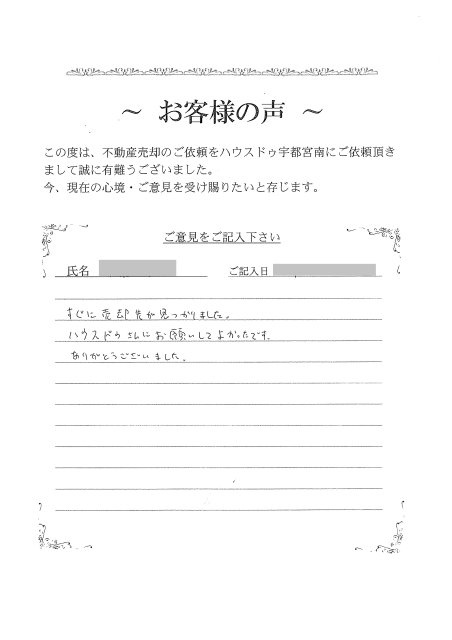 ～ お客様の声 ～
この度は、不動産売却のご依頼をハウスドゥ宇都宮南にご依頼頂き
まして誠に有難うございました。
今、現在の心境・ご意見を受け賜りたいと存じます。
ご意見をご記入下さい
氏名
ご記入日
すぐに売却先が見つかりました。
ハウスドゥさんにお願いしてよかったです。
ありがとうございました。